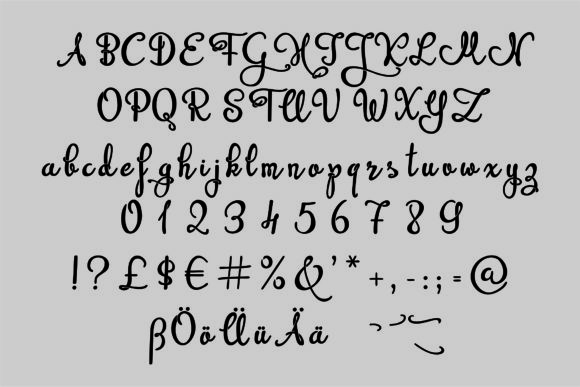 A B C D E F G H I J K L M N
O P Q R S T U V W X Y Z
a b c d e f g h i j k l m n o p q r s t u v w x y z
0 1 2 3 4 5 6 7 8 9
! ? £ $ € # % & ' * + , - : ; = @
β Ö ö Ü ü Ä ä